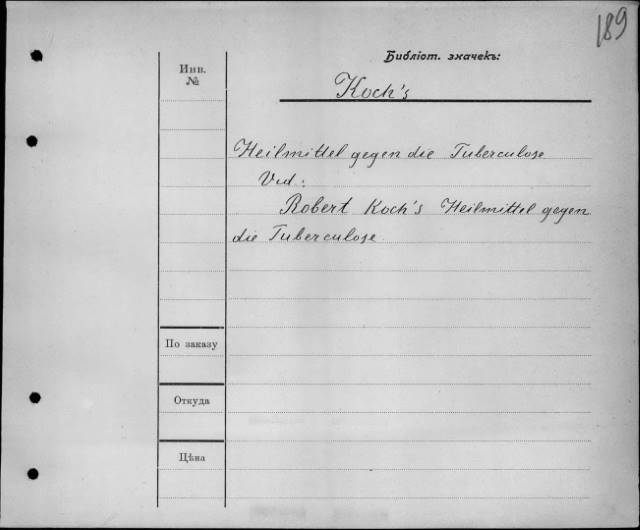 189
Библіот. значекъ:
Инв.
№
Koch's
Heilmittel gegen die Tuberculose
Vid.:
Robert Koch's Heilmittel gegen
die Tuberculose
По заказу
Откуда
Цѣна